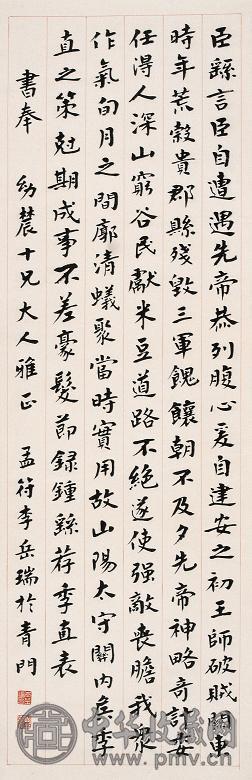 臣繇言臣自遭遇先帝恭列腹心爰自建安之初王師破賊關東
時年荒穀貴郡縣殘毀三軍餽饟朝不及夕先帝神略奇計委
任得人深山窮谷民獻米豆道路不絕遂使强敵喪膽我眾
作氣旬月之間廓清蟻聚當時實用故山陽太守關內侯季
直之策尅期成事不差豪髮節録鍾繇荐季直表
書奉 幼農十兄大人雅正 孟符李岳瑞於青門
中华收藏网
www.pmcn.cn